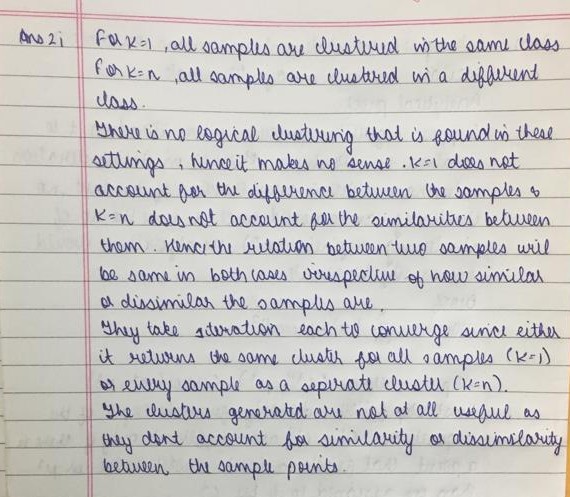 Ans 2i For K=1, all samples are clustered in the same class
For K=n, all samples are clustered in a different
class.
There is no logical clustering that is found in these
settings, hence it makes no sense. K=1 does not
account for the difference between the samples &
K=n does not account for the similarities between
them. Hence the relation between two samples will
be same in both cases irrespective of how similar
or dissimilar the samples are.
They take 1 iteration each to converge since either
it returns the same cluster for all samples (K=1)
or every sample as a seperate cluster (K=n).
The clusters generated are not at all useful as
they dont account for similarity or dissimilarity
between the sample points.